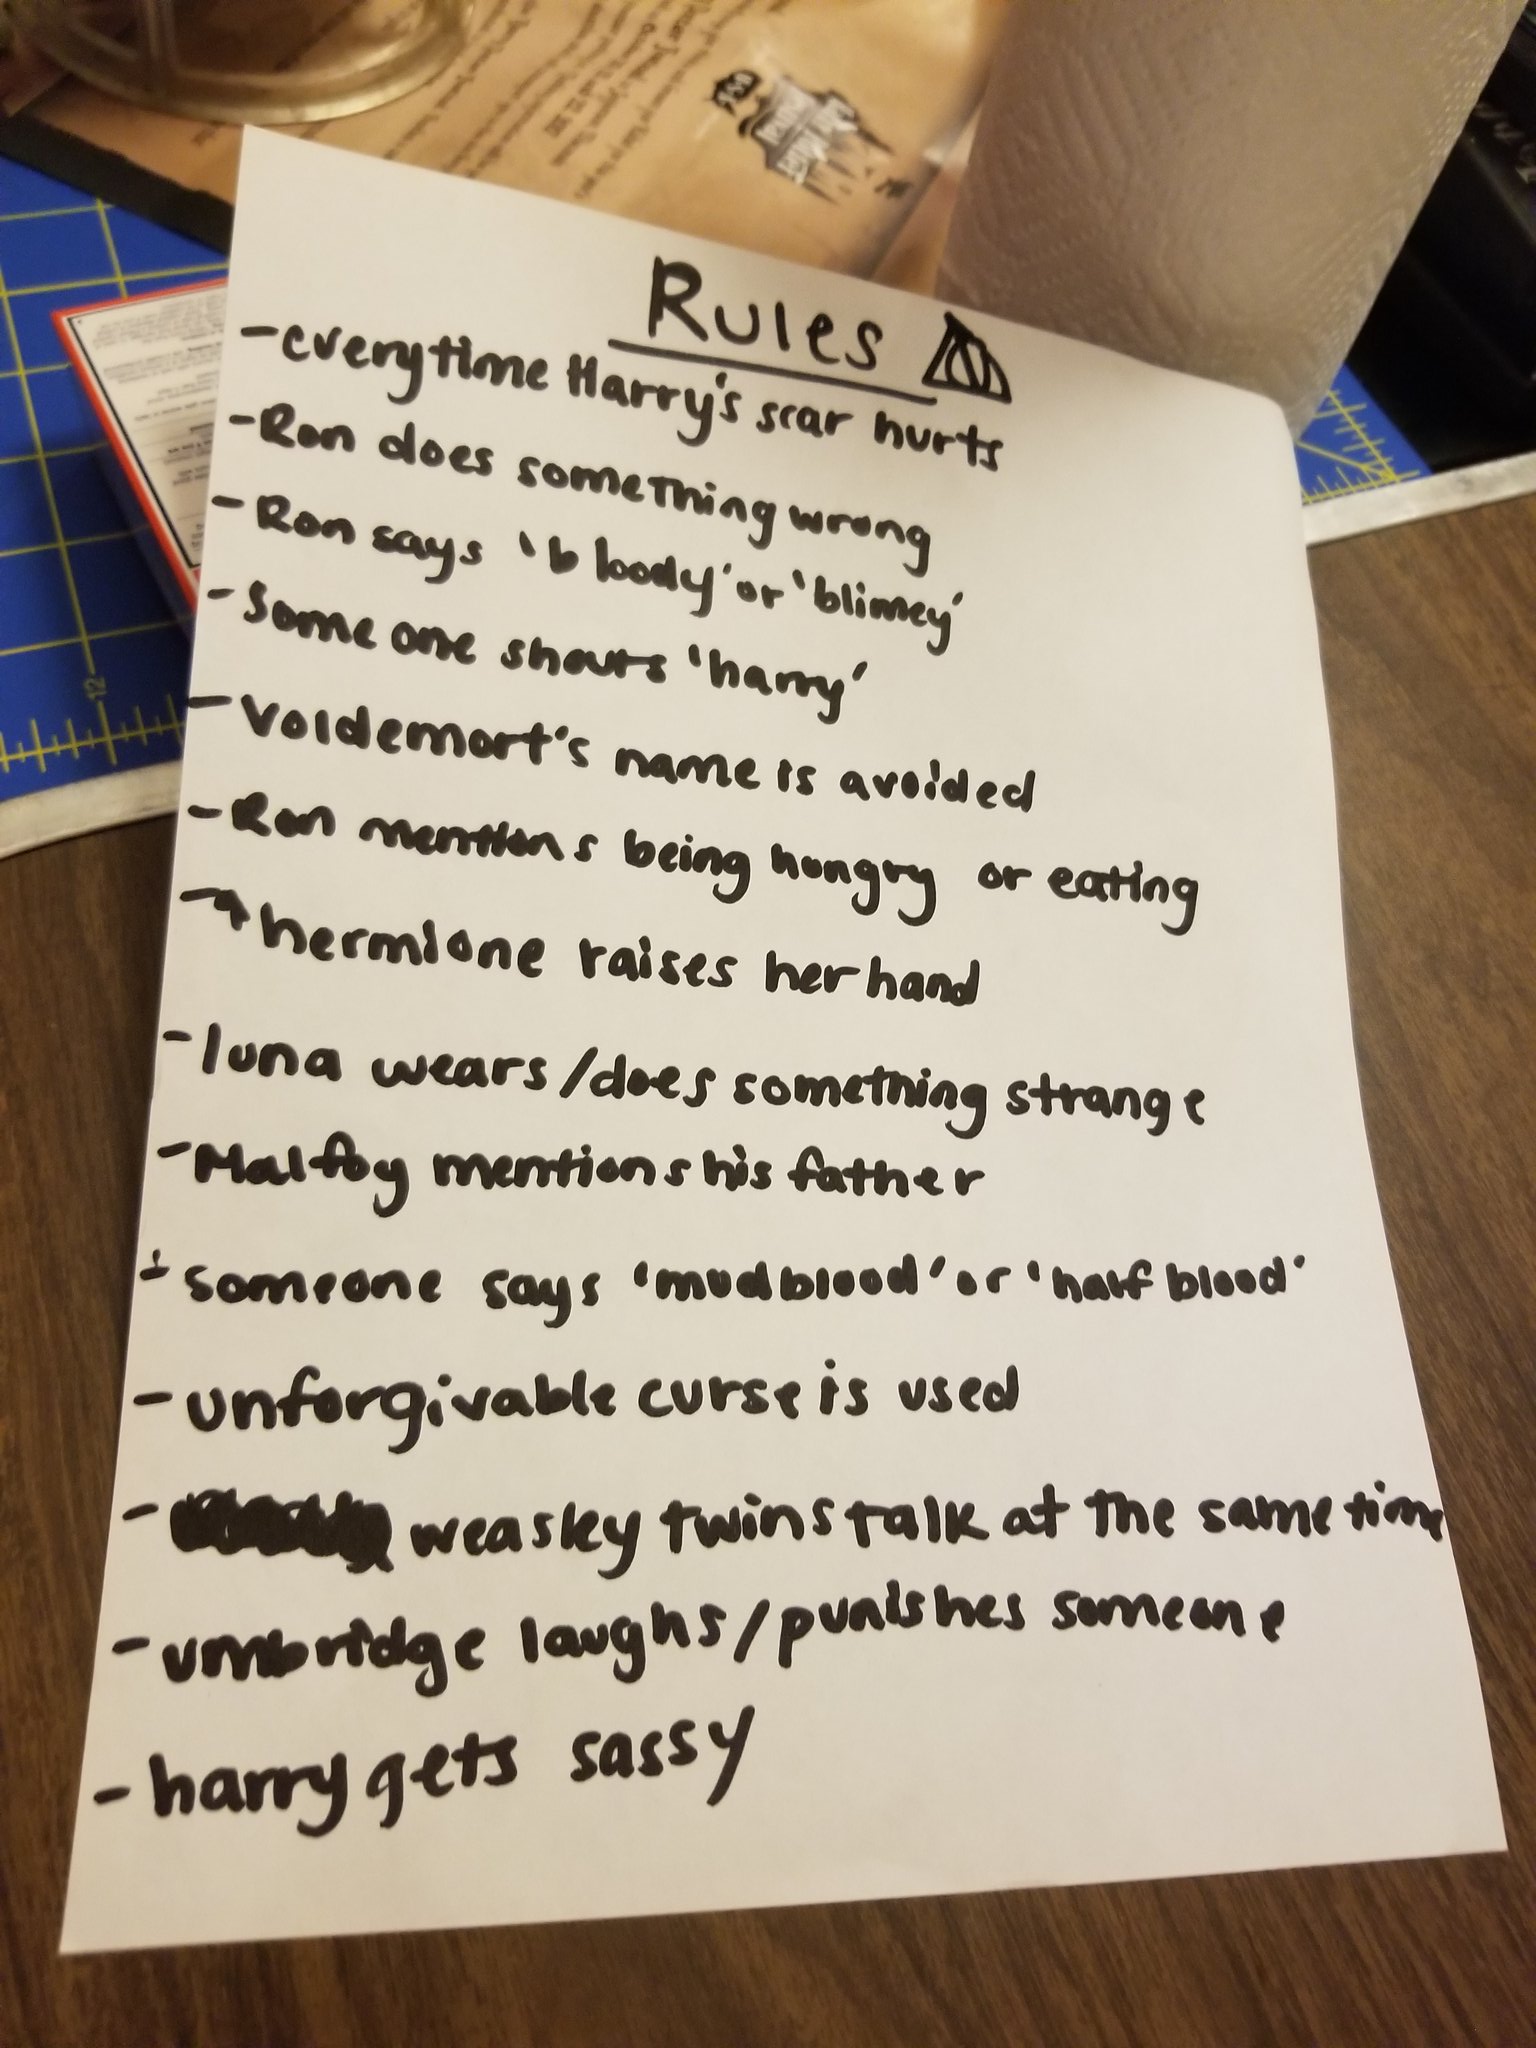 Rules
- everytime Harry's scar hurts
- Ron does something wrong
- Ron says 'bloody' or 'blimey'
- Some one shouts 'harry'
- Voldemort's name is avoided
- Ron mentions being hungry or eating
- hermione raises her hand
- luna wears/does something strange
- Malfoy mentions his father
- someone says 'mudblood' or 'half blood'
- unforgivable curse is used
- weasley twins talk at the same time
- umbridge laughs/punishes someone
- harry gets sassy
12